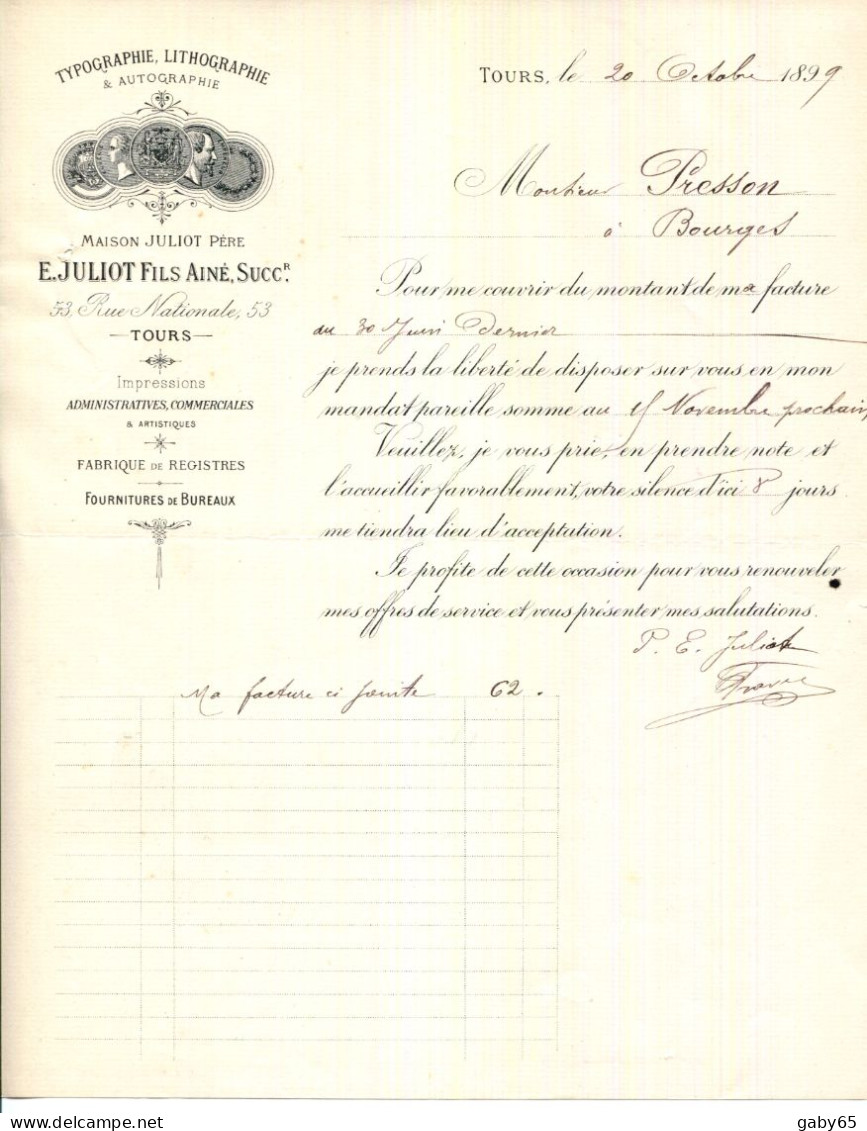 TYPOGRAPHIE, LITHOGRAPHIE
& AUTOGRAPHIE
MAISON JULIOT PÈRE
E. JULIOT FILS AINÉ, SUCCR.
53, Rue Nationale, 53
TOURS
Impressions
ADMINISTRATIVES, COMMERCIALES
& ARTISTIQUES
FABRIQUE DE REGISTRES
FOURNITURES DE BUREAUX
TOURS, le 20 Octobre 1899
Monsieur Presson
à Bourges
Pour me couvrir du montant de ma facture
du 30 Juin dernier
je prends la liberté de disposer sur vous en mon
mandat pareille somme au 15 Novembre prochain,
Veuillez, je vous prie, en prendre note et
l'accueillir favorablement, votre silence d'ici 8 jours
me tiendra lieu d'acceptation.
Je profite de cette occasion pour vous renouveler
mes offres de service et vous présenter mes salutations.
P. E. Juliot
Ma facture ci jointe 62 .
gaby65